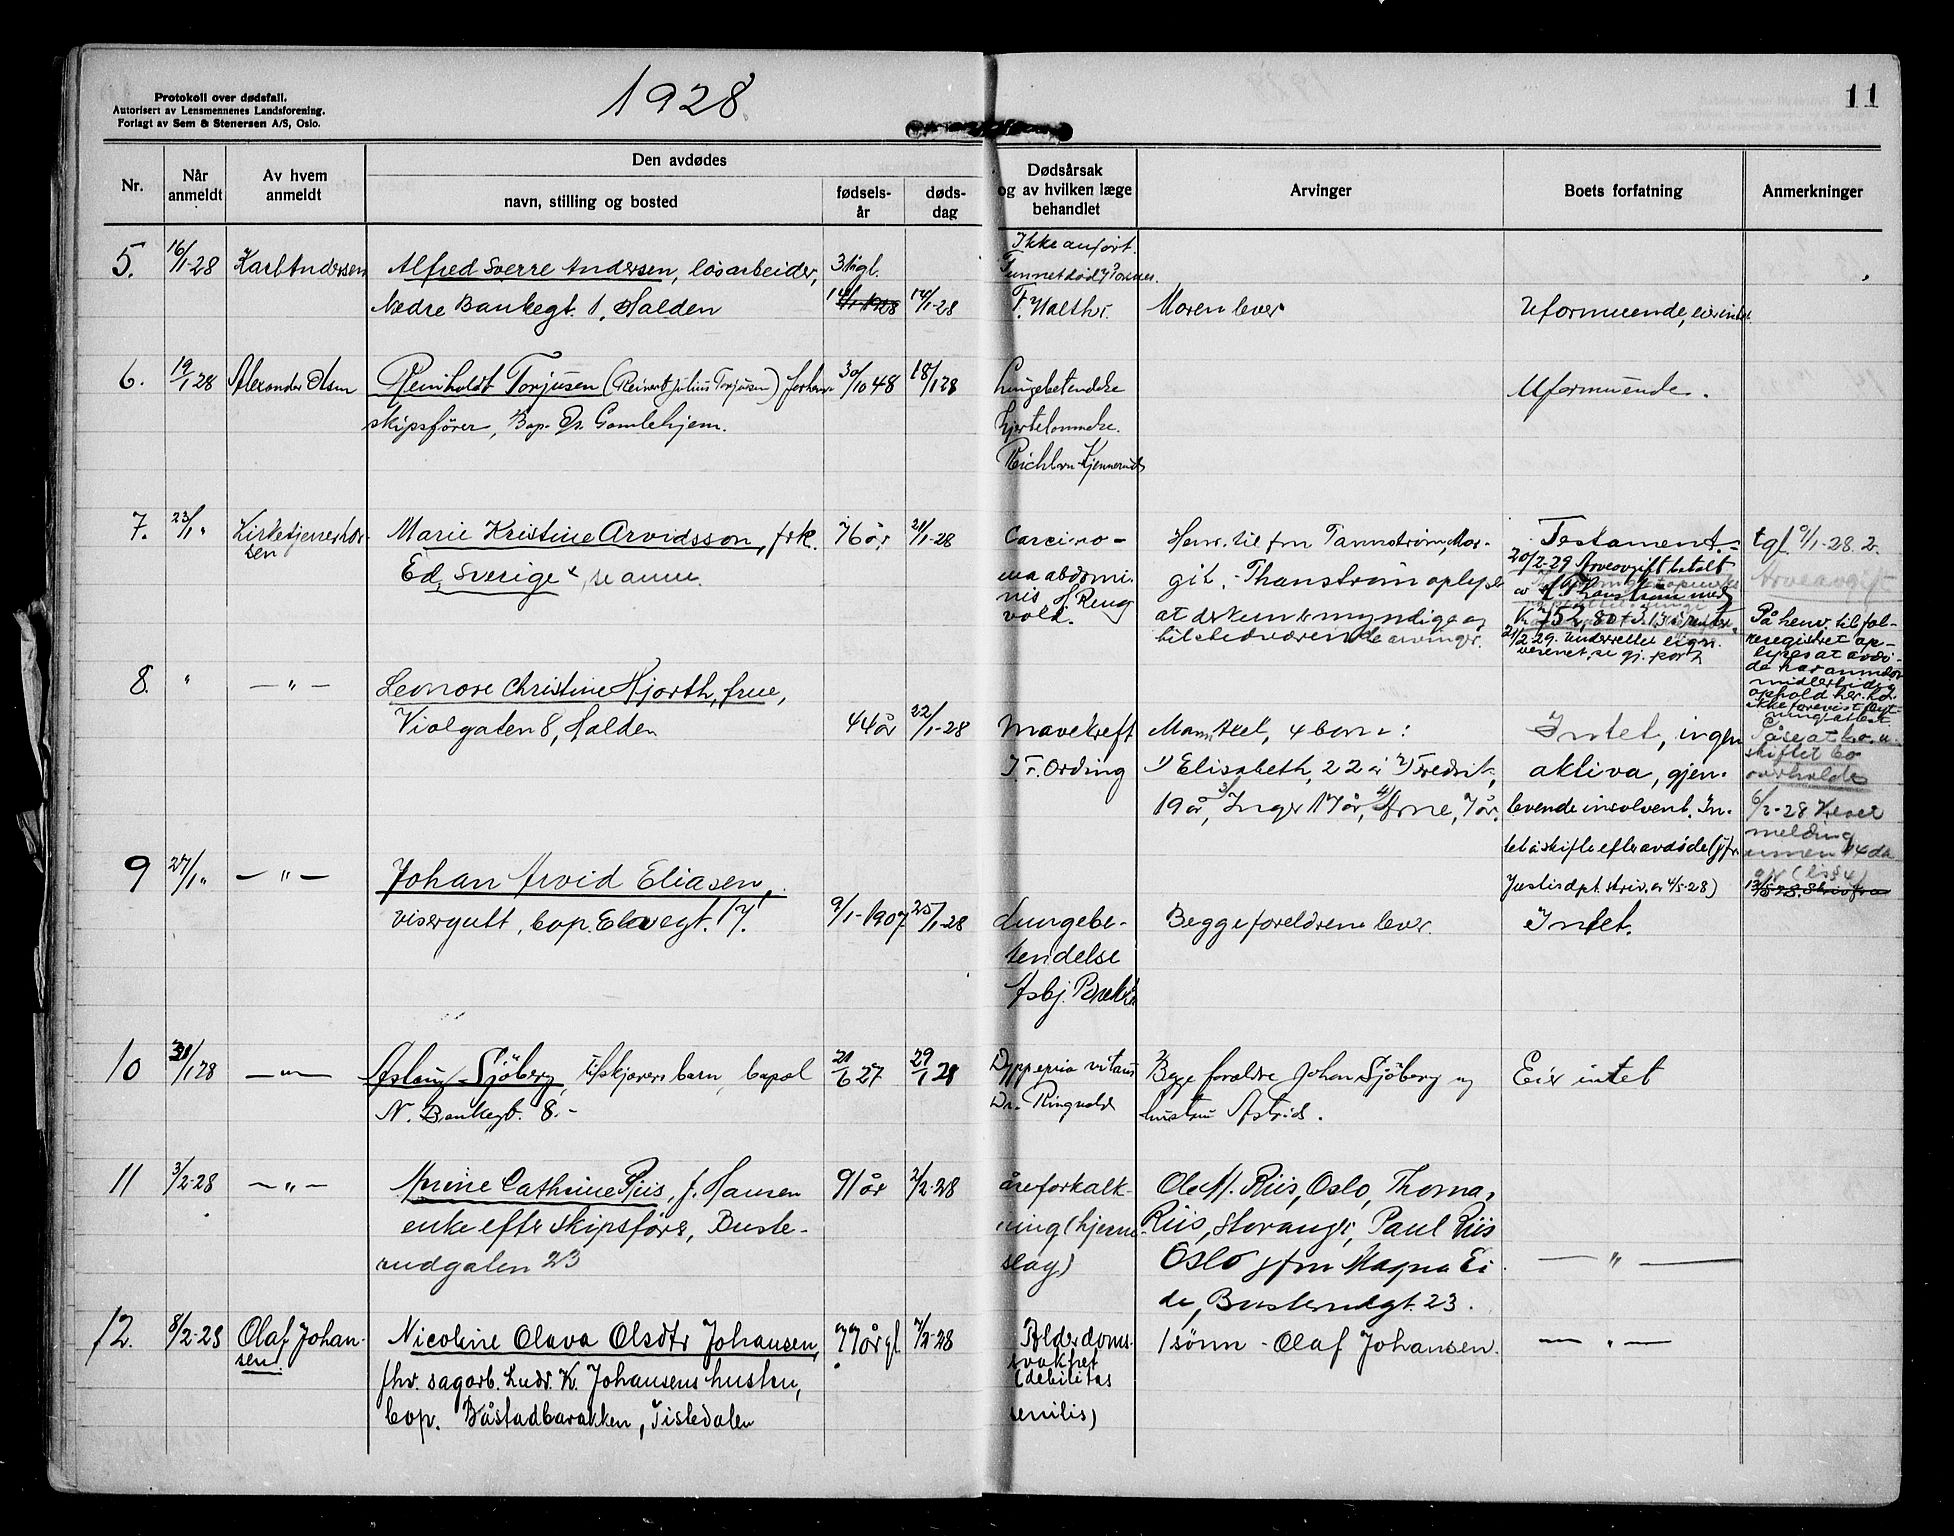 Protokoll over dødsfall.
Autorisert av Lensmennenes Landsforening.
Forlagt av Sem & Stenersen A/S, Oslo.
1928
11
Nr.
Når anmeldt
Av hvem anmeldt
Den avdødes
navn, stilling og bosted
fødsels-år
døds-dag
Dødsårsak og av hvilken læge behandlet
Arvinger
Boets forfatning
Anmerkninger
5.
16/1-28
Karl Andersen
Alfred Sverre Andersen, løsarbeider,
Nedre Bankegt. 1, Halden
14/1-28
Ikke anført.
F. Walthr.
Moren lever
Uformuende, eier intet
6.
19/1 28
Alexander Olsen
Reinholdt Torjusen (Reinert Julius Torjusen) forhenv
skipsfører, Bop. Gamlehjem.
30/10 48
18/1 28
Lungebetendelse
hjertelammelse.
Uformuende.
7.
23/1 "
Kirketjener
Marie Kristine Arvidsson, frk.
Ed, Sverige
76 år,
21/1-28
Carcino-
ma abdomi-
nis H. Ring
vold.
Henv. til fru Tannstrøm, Mar-
git. - Thanstrøm oplyser
at der kun er myndige og
tilstedeværende arvinger.
Testament.-
20/2-29 Arveavgift betalt
av M. Thanstrøm med
21/2 29. Underrettet lign.
Arveavgift
På henv. til fol-
keregistret op-
lyses at avdø-
de har
midlertidig
ophold her. Ed
ikke forevist flyt-
ningsattest
8.
"
— " —
Leonore Christine Hjorth, frue,
Violgaten 8, Halden
44 år
22/1-28
Mavekreft
I Fr. Ording
4 barn:
1) Elisabeth, 22 år 2) Fredrik,
19 år, 3) Inger 17 år, 4) Arne, 7 år.
Intet, ingen
aktiva, gjen-
levende insolvent. In-
tet å skifte efter avdøde (jfr.
Justisdpt. skriv. av 4/5-28)
Påse at
skiftet bo
overholdes
6/2-28
melding
innen 14 da
9
27/1 "
— " —
Johan Arvid Eliasen,
visergutt, bop. Elvegt. 17.
9/1-1907
25/1-28
Lungebe-
tendelse
Begge foreldrene lever.
Intet.
10
31/1 28
— " —
Aslaug Sjöberg, barn, bopæl
N. Bankegt. 8.-
21/6 27
29/1 28
Dr. Ringvold
Begge foreldre Johan Sjöberg og
hustru Astrid.
Eier intet
11
3/2-28
— " —
Cathrine Riis, f. Hansen
enke efter skipsfører, Buste-
rudgaten 23
91 år
2/2-28
åreforkalk-
ning (hjerne
slag)
Ole M. Riis, Oslo, Thomas
Riis, Stavanger, Paul Riis
Oslo, fru Magna Ei-
de, Busterudgt. 23.
— " —
12.
8/2-28
Olaf Johan-
sen.
Nicoline Olava Olsdtr Johansen,
fhv. sagarb. Ludv. K. Johansens hustru,
bop. Båstadbarakken, Tistedalen
77 år gl.
7/2-28
Alderdoms-
svakhet
(debilitas
senilis)
1 sønn - Olaf Johansen.
— " —